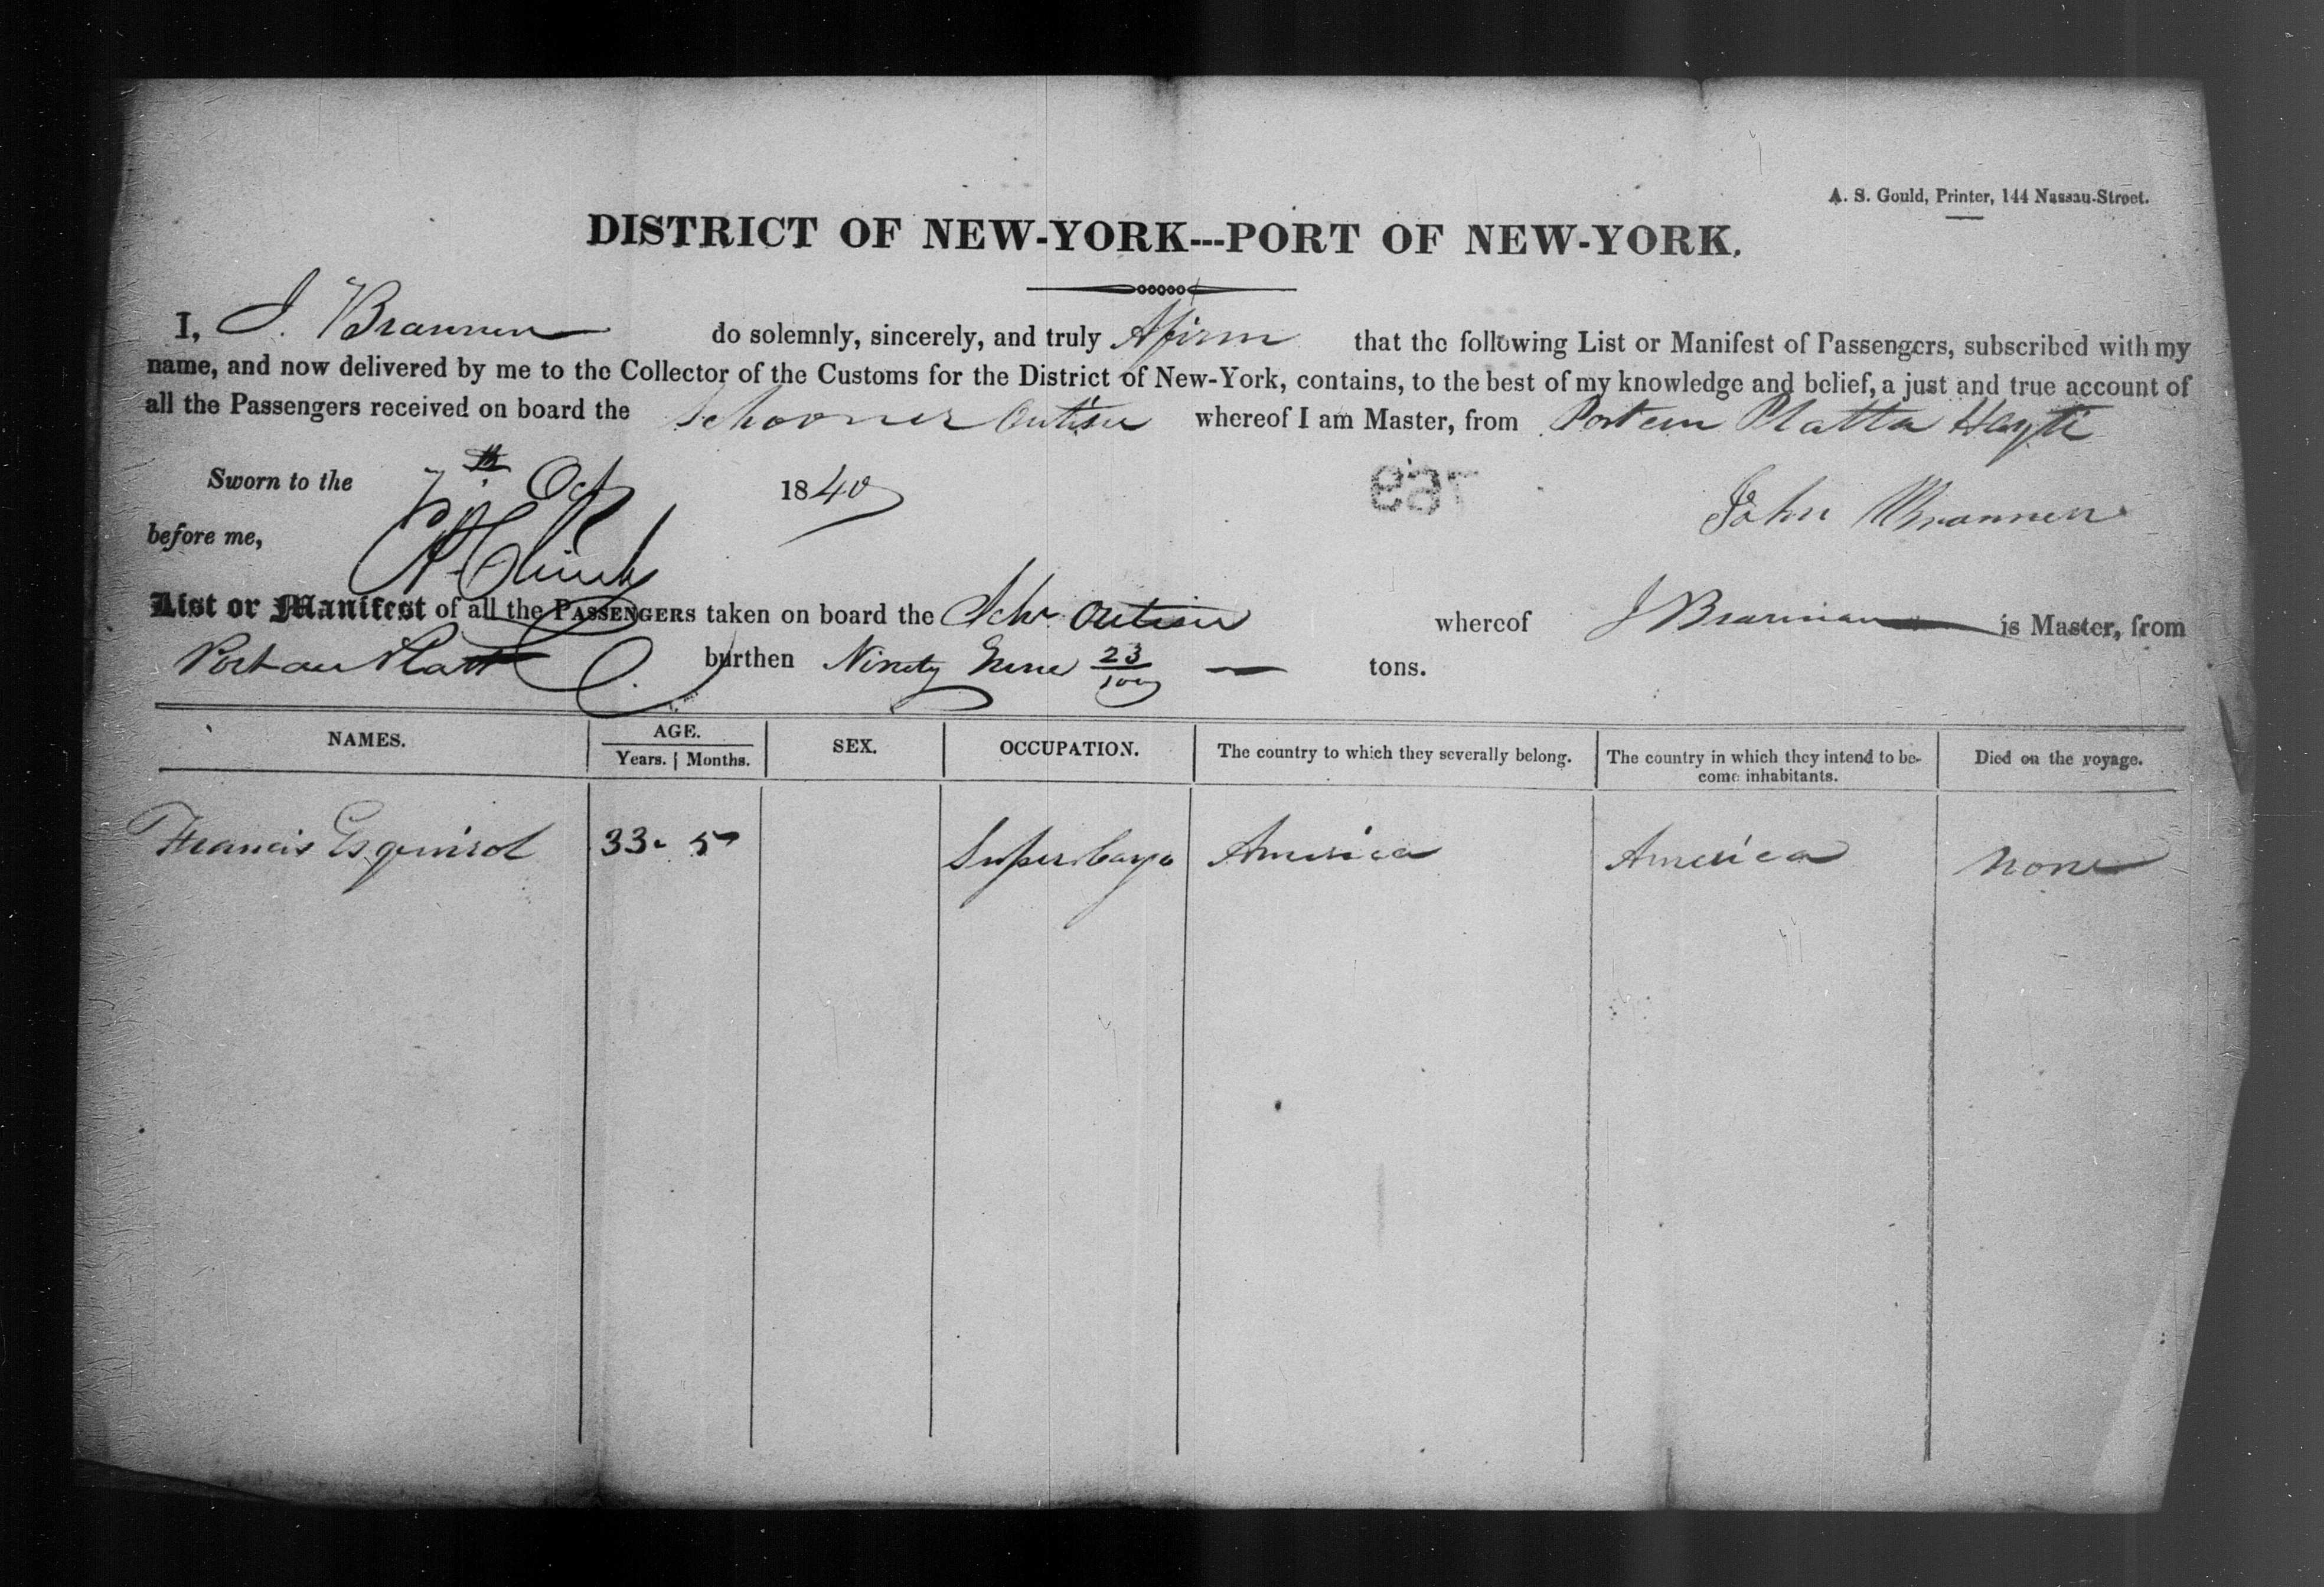 A. S. Gould, Printer, 144 Nassau-Street.
DISTRICT OF NEW-YORK---PORT OF NEW-YORK.
I, J. Brannen do solemnly, sincerely, and truly Afirm that the following List or Manifest of Passengers, subscribed with my
name, and now delivered by me to the Collector of the Customs for the District of New-York, contains, to the best of my knowledge and belief, a just and true account of
all the Passengers received on board the Schooner whereof I am Master, from Port au Platta Hayti
Sworn to the 7th Oct 1840
John Brannen
before me,
List or Manifest of all the PASSENGERS taken on board the Schr whereof J Brannan is Master, from
Port au Platt burthen Ninety Nine 23/100 tons.
NAMES. AGE. SEX. OCCUPATION. The country to which they severally belong. The country in which they intend to be-
Years. Months. come inhabitants. Died on the voyage.
Francis Esquirol 33 5 Supercargo America America None